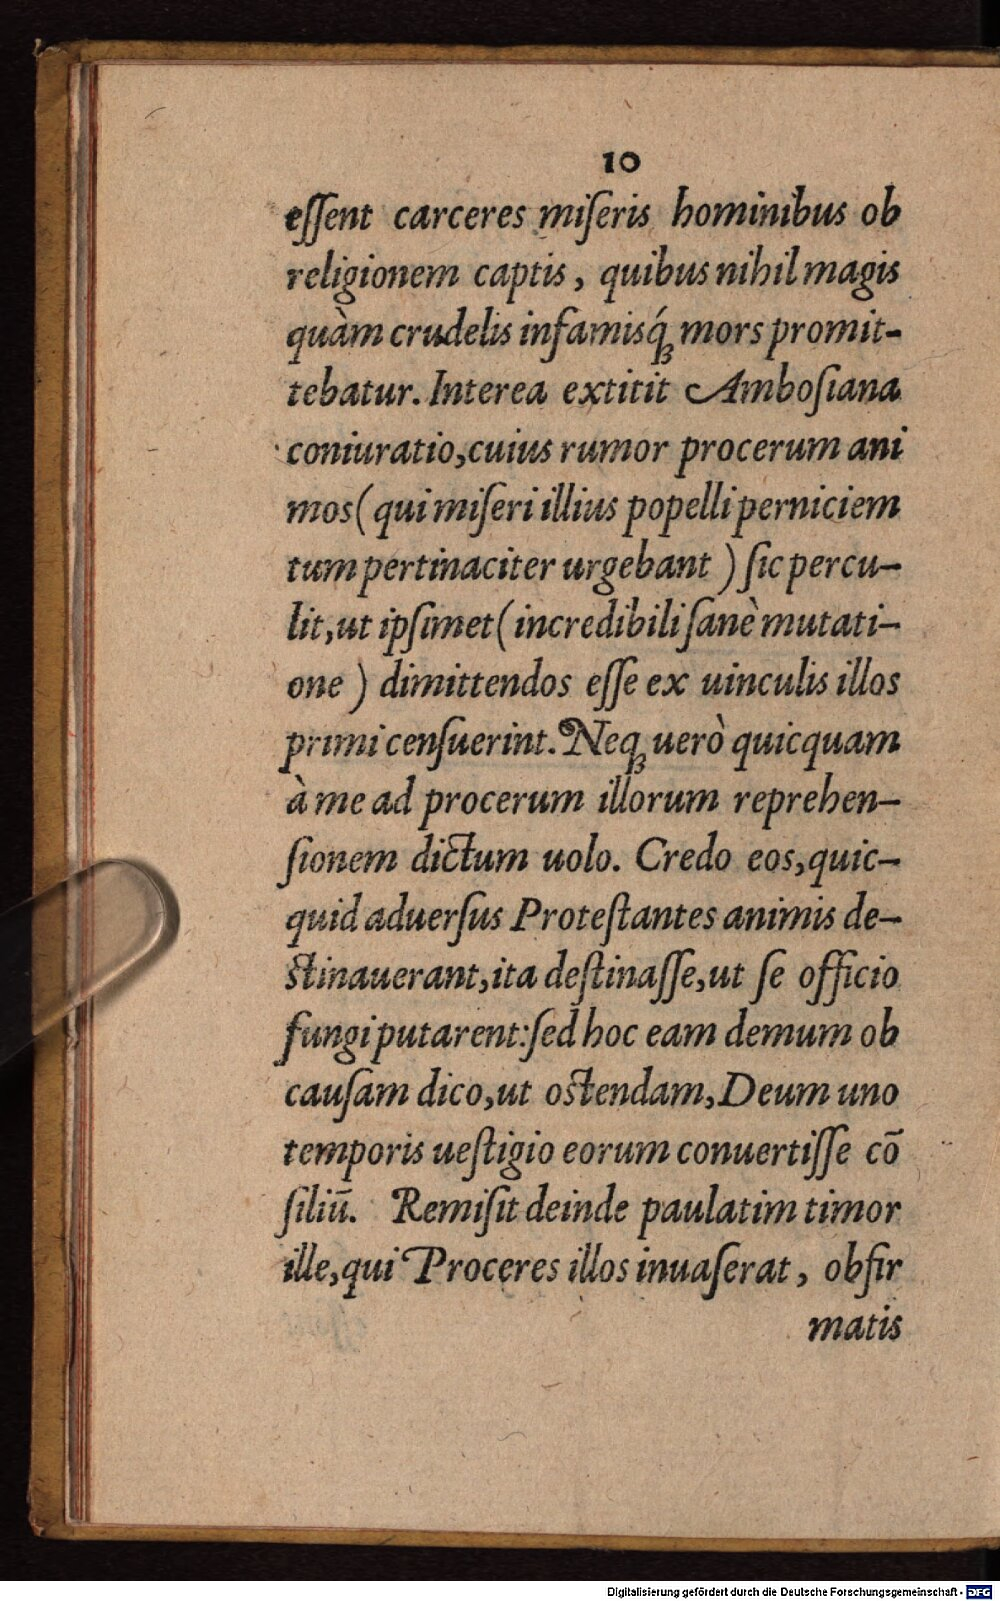 10
eſſent carceres miſeris hominibus ob
religionem captis, quibus nihil magis
quàm crudelis infamisq́; mors promit-
tebatur. Interea extitit Amboſiana
coniuratio, cuius rumor procerum ani
mos (qui miſeri illius popelli perniciem
tum pertinaciter urgebant) ſic percu-
lit, ut ipſimet (incredibili ſanè mutati-
one) dimittendos eſſe ex uinculis illos
primi cenſuerint. Neq; uerò quicquam
à me ad procerum illorum reprehen-
ſionem dictum uolo. Credo eos, quic-
quid aduerſus Proteſtantes animis de-
ſtinauerant, ita deſtinaſſe, ut ſe officio
fungi putarent: ſed hoc eam demum ob
cauſam dico, ut oſtendam, Deum uno
temporis ueſtigio eorum conuertiſſe cō
ſiliū. Remiſit deinde paulatim timor
ille, qui Proceres illos inuaſerat, obfir
matis
Digitalisierung gefördert durch die Deutsche Forschungsgemeinschaft - DFG